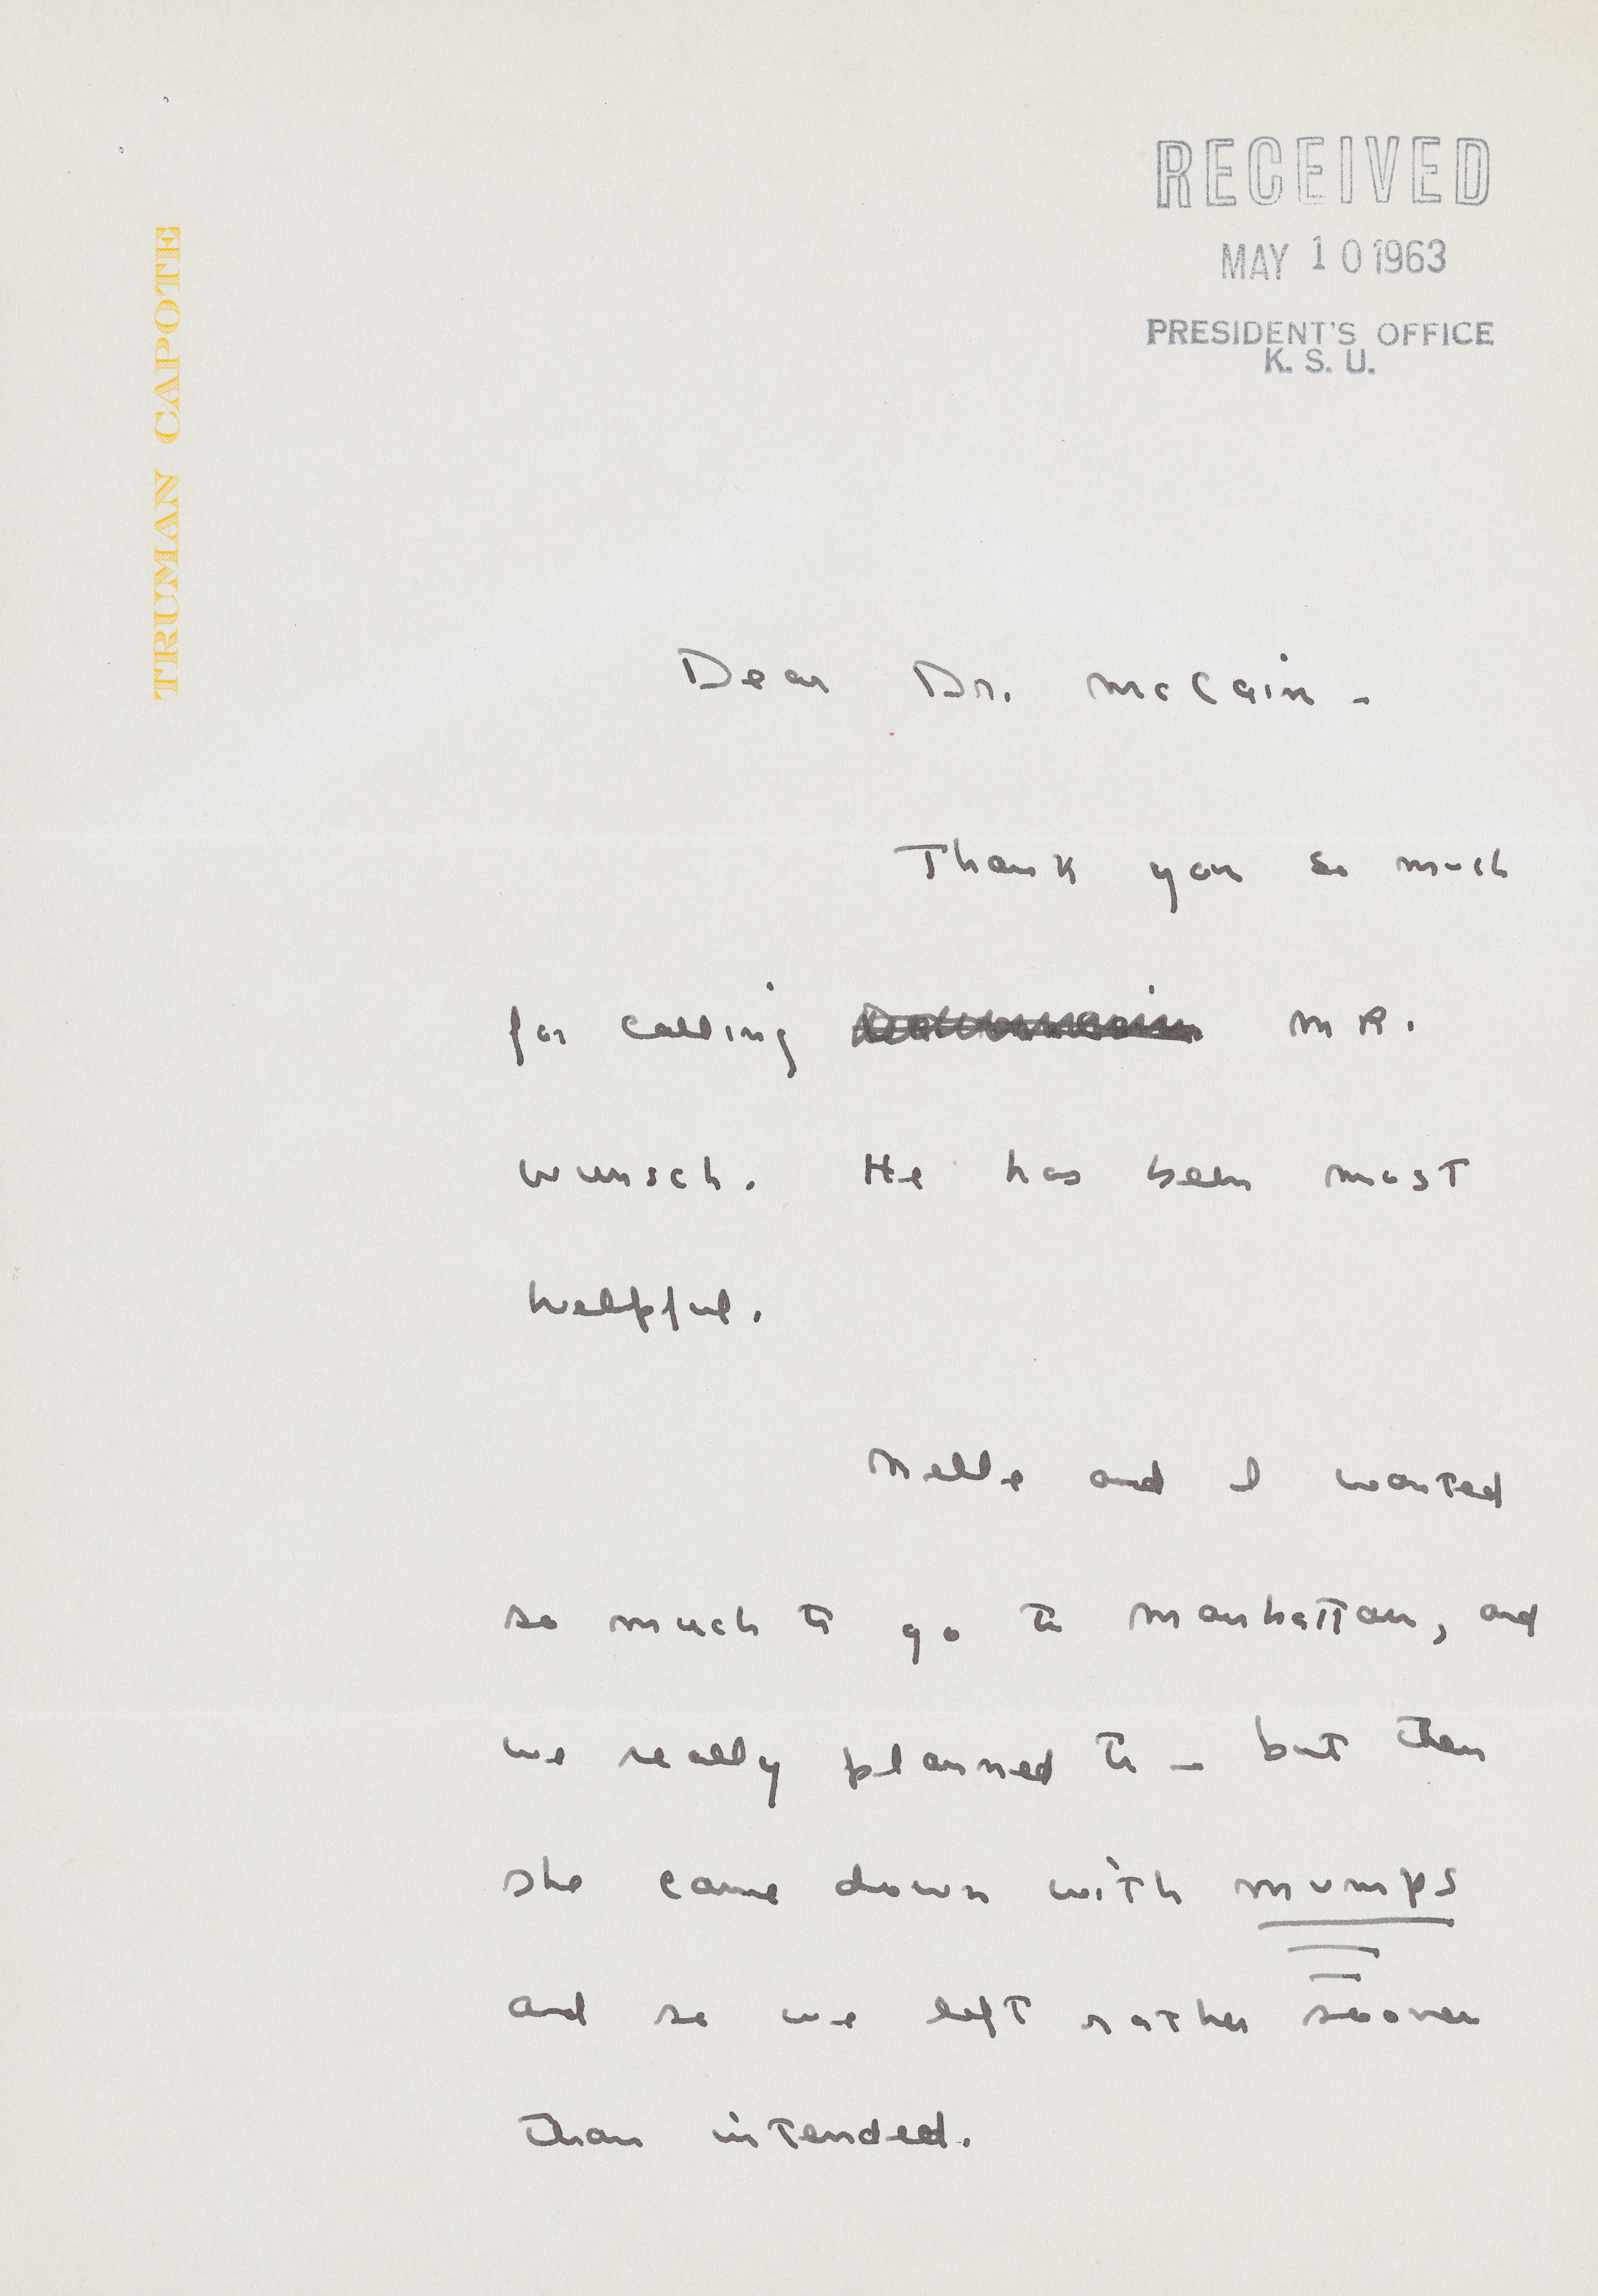 TRUMAN CAPOTE
RECEIVED
MAY 10 1963
PRESIDENT'S OFFICE
K. S. U.
Dear Dr. McCain -
Thank you so much
for calling MR.
Wunsch. He has been most
helpful.
Nelle and I wanted
so much to go to Manhattan, and
we really planned to - but then
she came down with mumps
and so we left rather sooner
than intended.